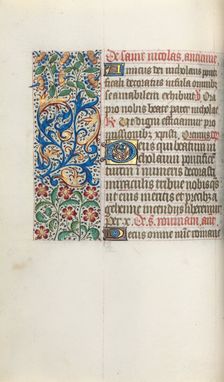 De saint nicolas, antienne
Amicus dei nicholaus ponti
ficali decoratus infula omnibus
se amabilem exhibuit V Ora
pro nobis beate pater nicholae
R Ut digni efficiamur pro
missionibz xpisti, Oremus or
Deus qui beatum ni
cholaum pontifice
tuum innumeris decorasti
miraculis tribue nobis qs
ut eius meritis et precibz a
gehenne incendijs liberemur
Per x. De s. rommain, ane
Deus omne romane